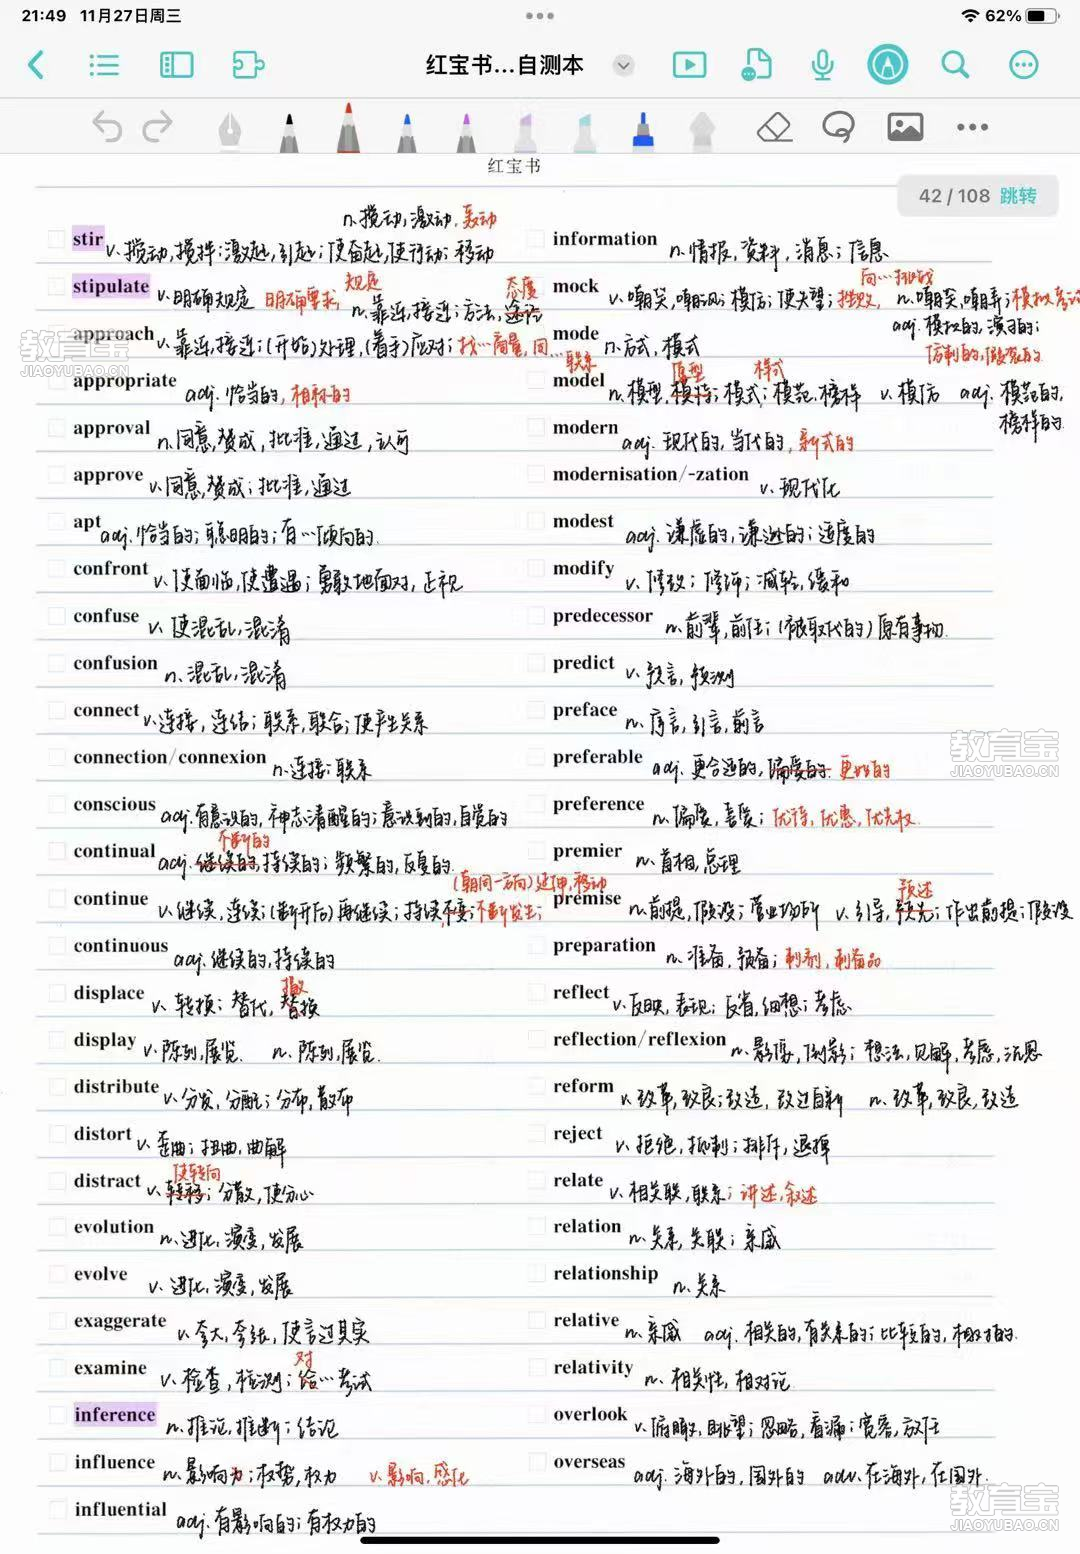 21:49 11月27日周三
62%
红宝书...自测本
红宝书
42 / 108 跳转
n.搅动,激动,轰动
stir v.搅动,搅拌;激起,引起;使奋起,使行动;移动
规定
stipulate v.明确规定 明确要求,
态度
approach n.靠近,接近;方法,途径
v.靠近,接近;(开始)处理,(着手)应对;找…商量,同…联系
appropriate adj.恰当的,相称的
approval n.同意,赞成,批准,通过,认可
approve v.同意,赞成;批准,通过
apt adj.恰当的;聪明的;有…倾向的.
confront v.使面临,使遭遇;勇敢地面对,正视
confuse v.使混乱,混淆
confusion n.混乱,混淆
connect v.连接,连结;联系,联合;使产生关系
connection/connexion n.连接;联系
conscious adj.有意识的,神志清醒的;意识到的,自觉的
不断的
continual adj.继续的,持续的;频繁的,反复的.
(朝同一方向)延伸,移动
continue v.继续,连续;(断开后)再继续;持续不变;不断发生;
continuous adj.继续的,持续的
撤
displace v.转换;替代,替换
display v.陈列,展览. n.陈列,展览.
distribute v.分发,分配;分布,散布
distort v.歪曲;扭曲,曲解
使转向
distract v.转移;分散,使分心
evolution n.进化,演变,发展
evolve v.进化,演变,发展
exaggerate v.夸大,夸张,使言过其实
对
examine v.检查,检测;给…考试
inference n.推论,推断;结论
influence n.影响力;权势,权力 v.影响,感化
influential adj.有影响的;有权力的
information n.情报,资料,消息;信息
向…挑战
mock v.嘲笑,嘲讽;模仿;使失望;挫败, n.嘲笑,嘲弄;模拟考试
adj.模拟的,演习的;
仿制的,假装的
mode n.方式,模式
原型 样式
model n.模型,模特;模式;模范,榜样 v.模仿 adj.模范的,
榜样的
modern adj.现代的,当代的,新式的
modernisation/-zation v.现代化
modest adj.谦虚的,谦逊的;适度的
modify v.修改;修饰;减轻,缓和
predecessor n.前辈,前任;(被取代的)原有事物.
predict v.预言,预测
preface n.序言,引言,前言
preferable adj.更合适的,偏爱的.更好的
preference n.偏爱,喜爱;优待,优惠,优先权
premier n.首相,总理
预述
premise n.前提,假设;营业场所 v.引导,预先;作出前提;假设
preparation n.准备,预备;制剂,制备品
reflect v.反映,表现;反省,细想;考虑
reflection/reflexion n.影像,倒影;想法,见解,考虑,沉思
reform v.改革,改良;改造,改过自新 n.改革,改良,改造
reject v.拒绝,抵制;排斥,退掉
relate v.相关联,联系;讲述,叙述
relation n.关系,关联;亲戚
relationship n.关系
relative n.亲戚 adj.相关的,有关系的;比较的,相对的.
relativity n.相关性,相对论
overlook v.俯瞰,眺望;忽略,看漏;宽容,放任
overseas adj.海外的,国外的 adv.在海外,在国外.
教育宝
JIAOYUBAO.CN
教育宝
JIAOYUBAO.CN
教育宝
JIAOYUBAO.CN